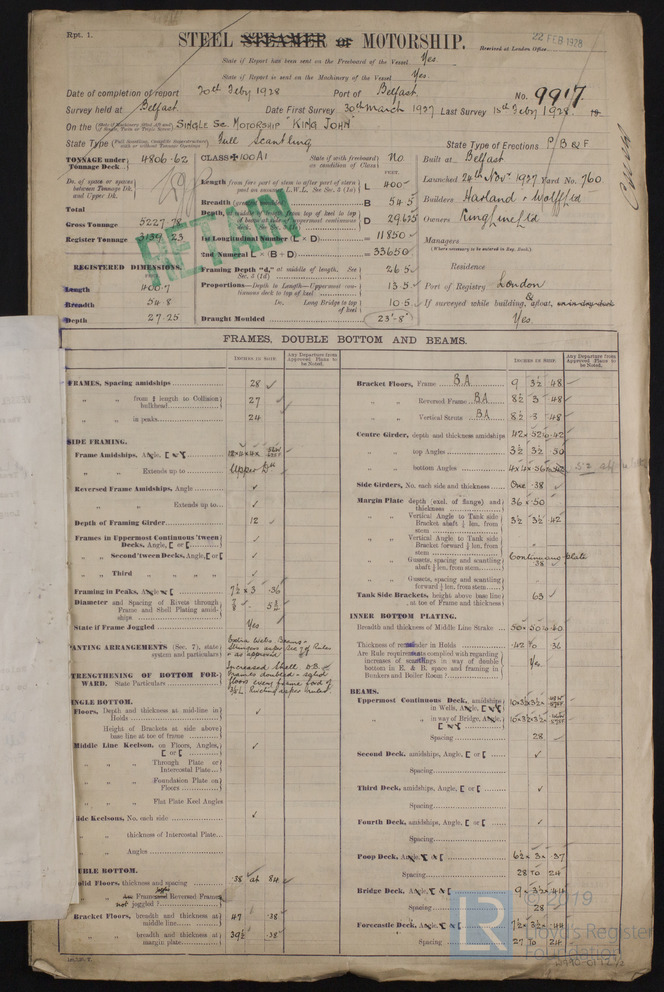 Rpt. 1.
STEEL STEAMER OR MOTORSHIP.
22 FEB 1928
Received at London Office
State if Report has been sent on the Freeboard of the Vessel Yes.
State if Report is sent on the Machinery of the Vessel Yes.
Date of completion of report 20th Feby 1928 Port of Belfast No. 9917.
Survey held at Belfast Date First Survey 30th March 1927 Last Survey 15th Feby 1928
On the Single Sc. Motorship "King John"
State Type Full Scantling State Type of Erections P B & F
TONNAGE under Tonnage Deck 4806.62
CLASS 100A1 State if with freeboard as condition of Class No
Built at Belfast
Launched 24th Nov. 1927 Yard No. 760
Builders Harland & Wolff Ltd
Owners King Line Ltd
Managers
Residence
Port of Registry London
If surveyed while building, afloat, or in dry dock
Yes.
Do. of space or spaces between Tonnage Dk. and Upper Dk.
Total
Gross Tonnage 5227.78
Register Tonnage 3139.23
RETAIN
REGISTERED DIMENSIONS.
Length 400.7
Breadth 54.8
Depth 27.25
Length L 400
Breadth B 54.5
Depth, D 29.625
1st Longitudinal Number (L × D) = 11850
2nd Numeral L × (B + D) = 33650
Framing Depth "d," at middle of length. See Sec. 3 (1d) 26.5
Proportions—Depth to Length—Uppermost continuous deck to top of keel 13.5
Do. Long Bridge to top of keel 10.5
Draught Moulded 23'-8"
FRAMES, DOUBLE BOTTOM AND BEAMS.
INCHES IN SHIP.
Any Departure from Approved Plans to be Noted.
INCHES IN SHIP.
Any Departure from Approved Plans to be Noted.
FRAMES, Spacing amidships 28
" " from 1/5 length to Collision bulkhead 27
" " in peaks 24
SIDE FRAMING.
Frame Amidships, Angle,
" " Extends up to Upper Dk
Reversed Frame Amidships, Angle
" " Extends up to
Depth of Framing Girder 12
Frames in Uppermost Continuous 'tween Decks, Angle, [ or [
" " Second 'tween Decks, Angle, [ or [
" " Third " " " "
Framing in Peaks, Angle 7½ × 3 .36
Diameter and Spacing of Rivets through Frame and Shell Plating amidships 7/8
State if Frame Joggled Yes
PANTING ARRANGEMENTS (Sec. 7), state system and particulars
STRENGTHENING OF BOTTOM FORWARD. State Particulars
SINGLE BOTTOM.
Floors, Depth and thickness at mid-line in Holds
Height of Brackets at side above base line at toe of frame
Middle Line Keelson, on Floors, Angles, [ or [
" " Through Plate or Intercostal Plate
" " Foundation Plate on Floors
" " Flat Plate Keel Angles
Side Keelsons, No. each side
" " thickness of Intercostal Plate
" " Angles
DOUBLE BOTTOM.
Solid Floors, thickness and spacing .38 at 84
Are Frame and Reversed Frames joggled?
Bracket Floors, breadth and thickness at middle line 47 .38
" " breadth and thickness at margin plate 39½ .38
Bracket Floors, Frame BA 9 3½ .48
" " Reversed Frame BA 8½ 3 .48
" " Vertical Struts BA 8½ 3 .48
Centre Girder, depth and thickness amidships 42 × .52 to .42
" " top Angles 3½ 3½ .50
" " bottom Angles 4 × 4 × .56
Side Girders, No. each side and thickness One .38
Margin Plate depth (excl. of flange) and thickness 36 × .50
" " Vertical Angle to Tank side Bracket abaft ¼ len. from stem 3½ 3½ .42
" " Vertical Angle to Tank side Bracket forward ¼ len. from stem "
" " Gussets, spacing and scantling abaft ¼ len. from stem Continuous Plate .38
" " Gussets, spacing and scantling forward ¼ len. from stem
Tank Side Brackets, height above base line at toe of Frame and thickness 63
INNER BOTTOM PLATING.
Breadth and thickness of Middle Line Strake 50 × .50 to .40
Thickness of remainder in Holds .42 to .36
Are Rule requirements complied with regarding increases of scantlings in way of double bottom in E. & B. space and framing in Bunkers and Boiler Room? Yes
BEAMS.
Uppermost Continuous Deck, amidships in Wells, Angle,
" " in way of Bridge, Angle,
Spacing 28
Second Deck, amidships, Angle, [ or [
Spacing
Third Deck, amidships, Angle, [ or [
Spacing
Fourth Deck, amidships, Angle, [ or [
Spacing
Poop Deck, Angle 6½ × 3 × .37
Spacing 28 to 24
Bridge Deck, Angle 9 × 3½ × .44
Spacing 28
Forecastle Deck, Angle 7½ × 3½ × .44
Spacing 27 to 24
LR
© 2019
Lloyd's Register
Foundation